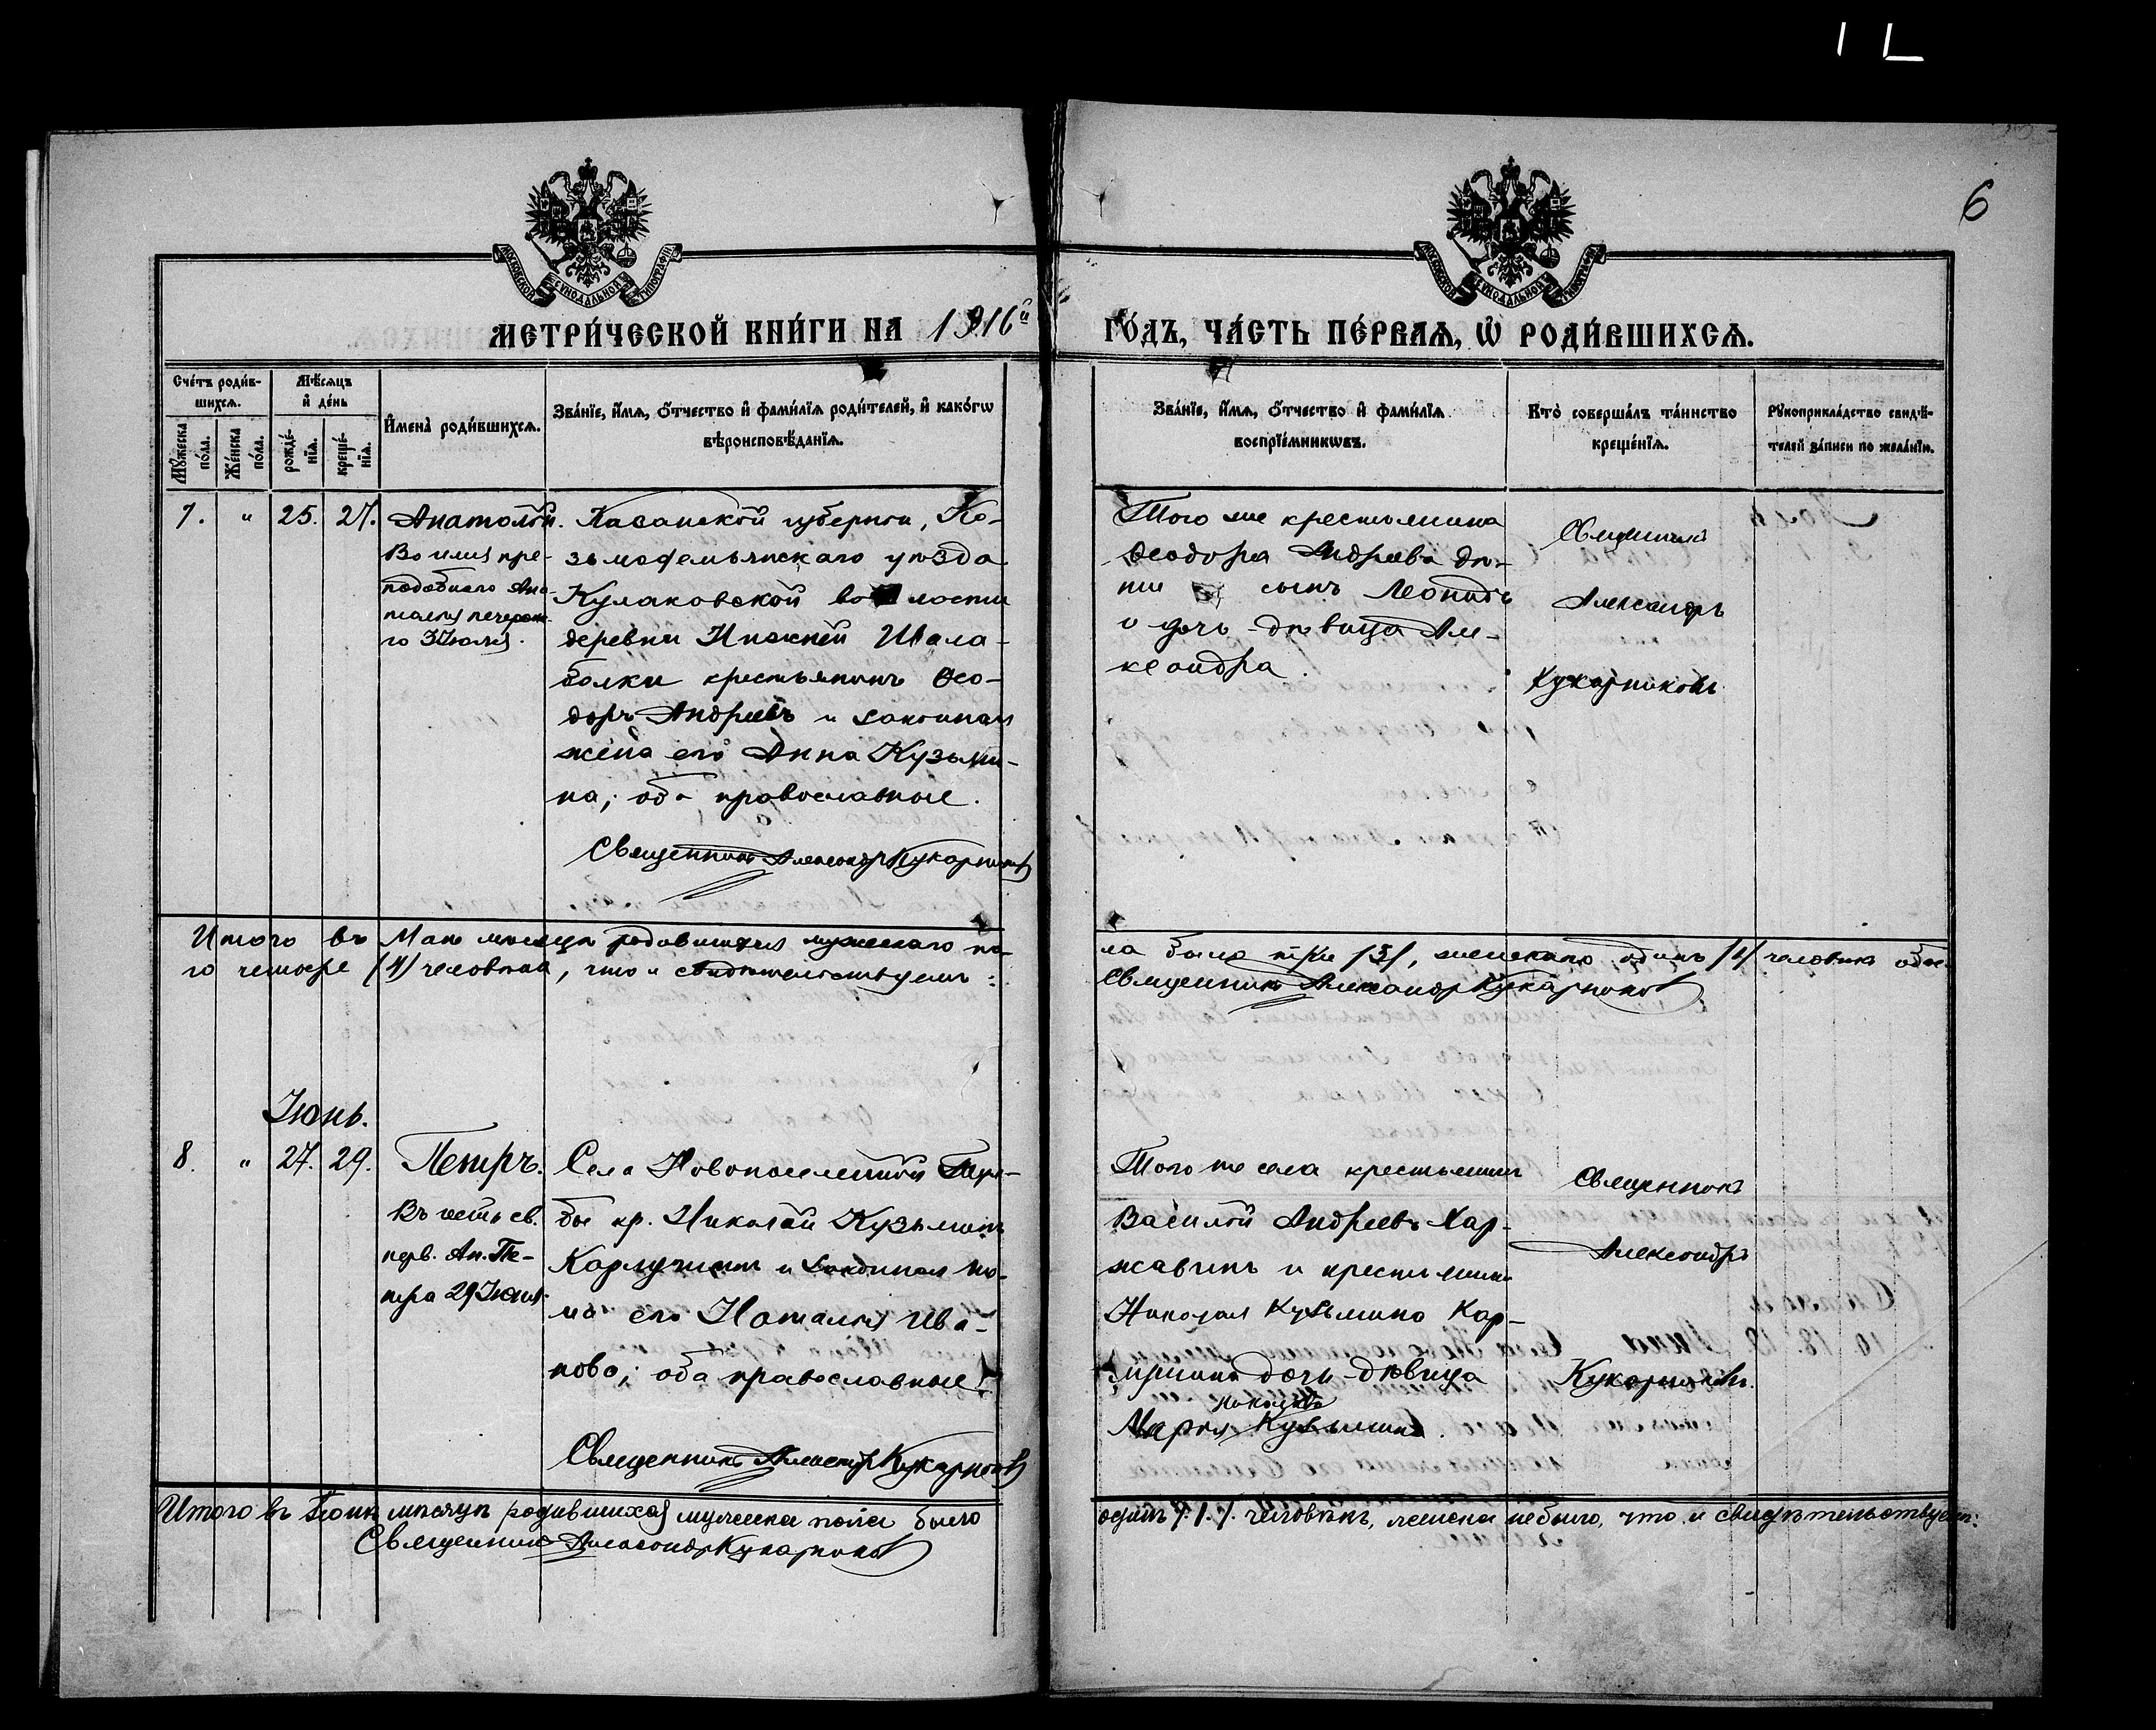 6
МОСКОВСКОЙ СУНОДАЛЬНОЙ ТИПОГРАФІИ
МОСКОВСКОЙ СУНОДАЛЬНОЙ ТИПОГРАФІИ
МЕТРИ́ЧЕСКОЙ КНИ́ГИ НА 1916й
ГО́ДЪ, ЧА́СТЬ ПЕ́РВАѦ, Ѽ РОДИ́ВШИХСѦ.
Сче́тъ роди́в-
шихсѧ.
Мꙋ́жеска по́ла.
Же́нска по́ла.
Мѣ́сѧцъ
и҆ де́нь
рожде́-
нїѧ.
креще́-
нїѧ.
И҆мена̀ роди́вшихсѧ.
Зва́нїе, и҆́мѧ, ѻ҆́тчество и҆ фами́лїѧ роди́телей, и҆ како́гѡ
вѣроисповѣ́данїѧ.
Зва́нїе, и҆́мѧ, ѻ҆́тчество и҆ фами́лїѧ
воспрїе́мникѡвъ.
Кто̀ соверша́лъ та́инство
креще́нїѧ.
Рꙋкоприкла́дство свидѣ́-
телей за́писи по жела́нїю.
7. " 25. 27. Анатолій.
Во имя пре-
подобнаго Ана-
толія печерска-
го 3 Іюля.
Казанской губерніи, Ко-
зьмодемьянскаго уѣзда
Кулаковской волости
деревни Нижней Шала-
болки крестьянинъ Ѳео-
доръ Андреевъ и законная
жена его Анна Кузьми-
на; оба православные.
Священникъ Александръ Кукарниковъ
Того же крестьянина
Ѳеодора Андреева дѣ-
ти сынъ Леонидъ
и дочь-дѣвица Але-
ксандра.
Священникъ
Александръ
Кукарниковъ
Итого въ Маѣ мѣсяцѣ родившихся мужескаго по-
ла было три /3/, женскаго одинъ /1/ человѣкъ обое-
го четыре /4/ человѣка, что и свидѣтельствуемъ:
Священникъ Александръ Кукарниковъ
Іюнь.
8. " 27. 29. Петръ.
Въ честь св.
перв. Ап. Пе-
тра 29 Іюня.
Села Новопоселенной
бы кр. Николай Кузьминъ
и законная же-
на его Наталія Ива-
нова; оба православные.
Священникъ Александръ Кукарниковъ
Того же села крестьянинъ
Василій Андреевъ Хар-
жавинъ и крестьянина
Николая Кузьмина Кар-
дочь-дѣвица
Николаева
Марія Кузьмина.
Священникъ
Александръ
Кукарниковъ.
Итого въ Іюнѣ мѣсяцѣ родившихся мужеска пола было
одинъ /1/ человѣкъ, женска не было, что и свидѣтельствуемъ:
Священникъ Александръ Кукарниковъ